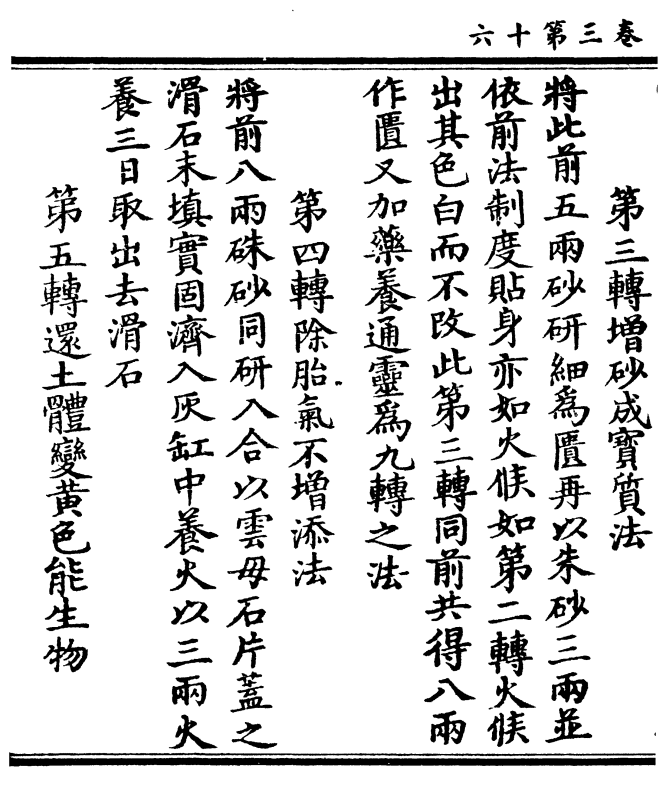 卷三第十六
第三轉增砂成寳質法
將此前五兩砂研細爲匱再以朱砂三兩並
依前法制度貼身亦如火候如第二轉火候
出其色白而不改此第三轉同前共得八兩
作匱又加藥養通靈爲九轉之法
第四轉除胎氣不增添法
將前八兩硃砂同研入合以雲母石片蓋之
滑石末填實固濟入灰缸中養火以三兩火
養三日取出去滑石
第五轉還土體變黃色能生物